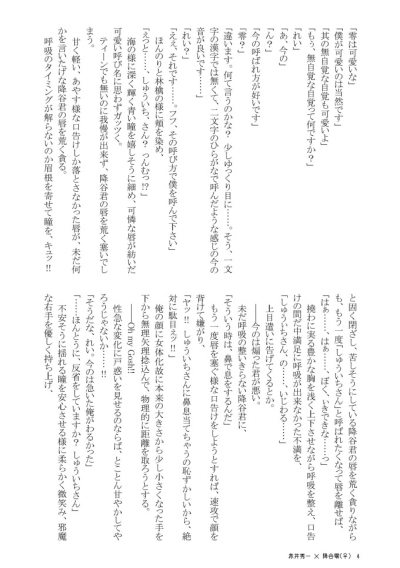 「零は可愛いな」
「僕が可愛いのは当然です」
「其の無自覚な自覚も可愛いよ」
「もぅ、無自覚な自覚って何ですか?」
「れい」
「あ、今の」
「今の呼ばれ方が好いです」
「零?」
「違います。何て言うのかな? 少しゆっくり目に……。そう、一文
字の漢字では無くて、二文字のひらがなで呼んだような感じの今の
音が良いです」
「れい?」
「ええ、それです……。フフ、その呼び方で僕を呼んで下さい」
ほんのりと林檎の様に頬を染め、
「えっと……、しゅういち、さん? つんむっ!?」
海の様に深く、輝く青い瞳を嬉しそうに細め、可憐な唇が紡いだ
可愛い呼び名に思わずガッツく。
ティーンでも無いのに我慢が出来ず、降谷君の唇を荒く塞いでし
まう。
甘く軽い、あやす様な口告けしか落とさなかった唇が、未だ何
かを言いたげな降谷君の唇を荒く貪る。
呼吸のタイミングが解らないのか眉根を寄せて瞳を、キュッ!!
と固く閉ざし、苦しそうにしている降谷君の唇を荒く貪りながら
も、もう一度『しゅういちさん』と呼ばれたくなって唇を離せば、
「はぁ……、はぁ……、ぼく、いきできな……っ」
撓わに実る豊かな胸を浅く上下させながら呼吸を整え、口告
けの間だ中満足に呼吸が出来なかった不満を、
「しゅういちさん……、の……、いじわる……」
上目遣いに告げてくるとか。
――今のは煽った君が悪い。
未だ呼吸の整いきらない降谷君に、
「そういう時は、鼻で息をするんだ」
もう一度唇を塞ぐ様な口告けをしようとすれば、速攻で顔を
背けて嫌がり、
「ヤッ!! しゅういちさんに鼻息当てちゃうの恥ずかしいから、絶
対に駄目ェッ!!」
俺の顔に女体化故に本来の大きさから少し小さくなった手を
下から無理矢理捻込んで、物理的に距離を取ろうとする。
――Oh my Gosh!!
性急な変化に戸惑いを見せるのならば、とことん甘やかしてや
ろうじゃないか……!!
「そうだな、れい。今のは急いた俺がわるかった」
「……ほんとうに、反省をしていますか? しゅういちさん」
不安そうに揺れる瞳を安心させる様に柔らかく微笑み、邪魔
な右手を優しく持ち上げ、
赤井秀一 × 降谷零(♀) 4